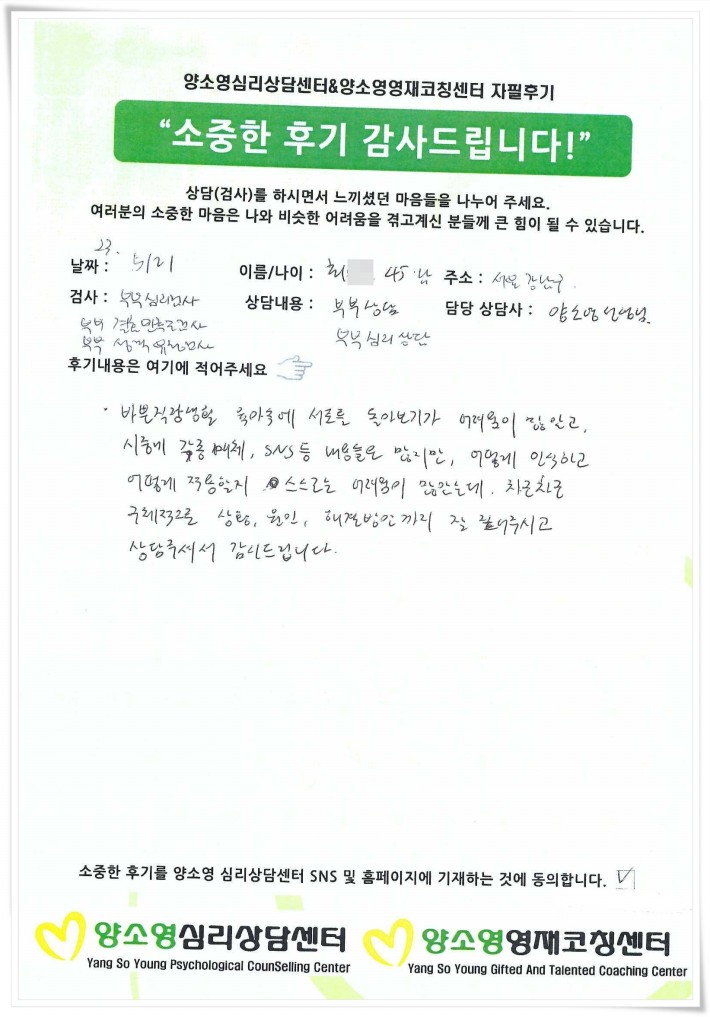 양소영심리상담센터&양소영영재코칭센터 자필후기
“소중한 후기 감사드립니다!”
상담(검사)를 하시면서 느끼셨던 마음들을 나누어 주세요.
여러분의 소중한 마음은 나와 비슷한 어려움을 겪고계신 분들께 큰 힘이 될 수 있습니다.
23.
날짜 : 5/21 이름/나이 : 최 45 남 주소 : 서울 강남구.
검사 : 부부심리검사 상담내용 : 부부상담 담당 상담사 : 양소영 선생님.
부부 결혼만족도검사 부부심리상담
부부 성격유형검사
후기내용은 여기에 적어주세요
· 바쁜직장생활 육아속에 서로를 돌아보기가 어려움이 많았고,
시중에 각종매체, SNS등 내용들은 많지만, 어떻게 인식하고
어떻게 적용할지 스스로는 어려움이 많았는데. 차근차근
구체적으로 상황, 원인, 해결방안까지 잘 주시고
상담주셔서 감사드립니다.
소중한 후기를 양소영 심리상담센터 SNS 및 홈페이지에 기재하는 것에 동의합니다.
양소영심리상담센터 양소영영재코칭센터
Yang So Young Psychological CounSelling Center Yang So Young Gifted And Talented Coaching Center